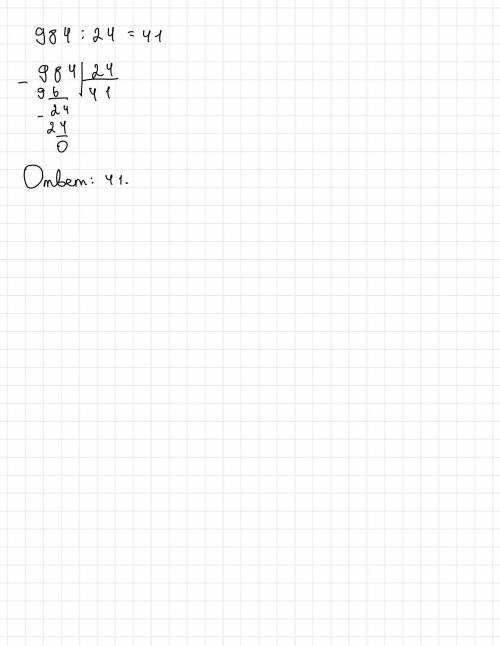 984 : 24 = 41
- 984 | 24
96 | 41
- 24
24
0
Ответ: 41.